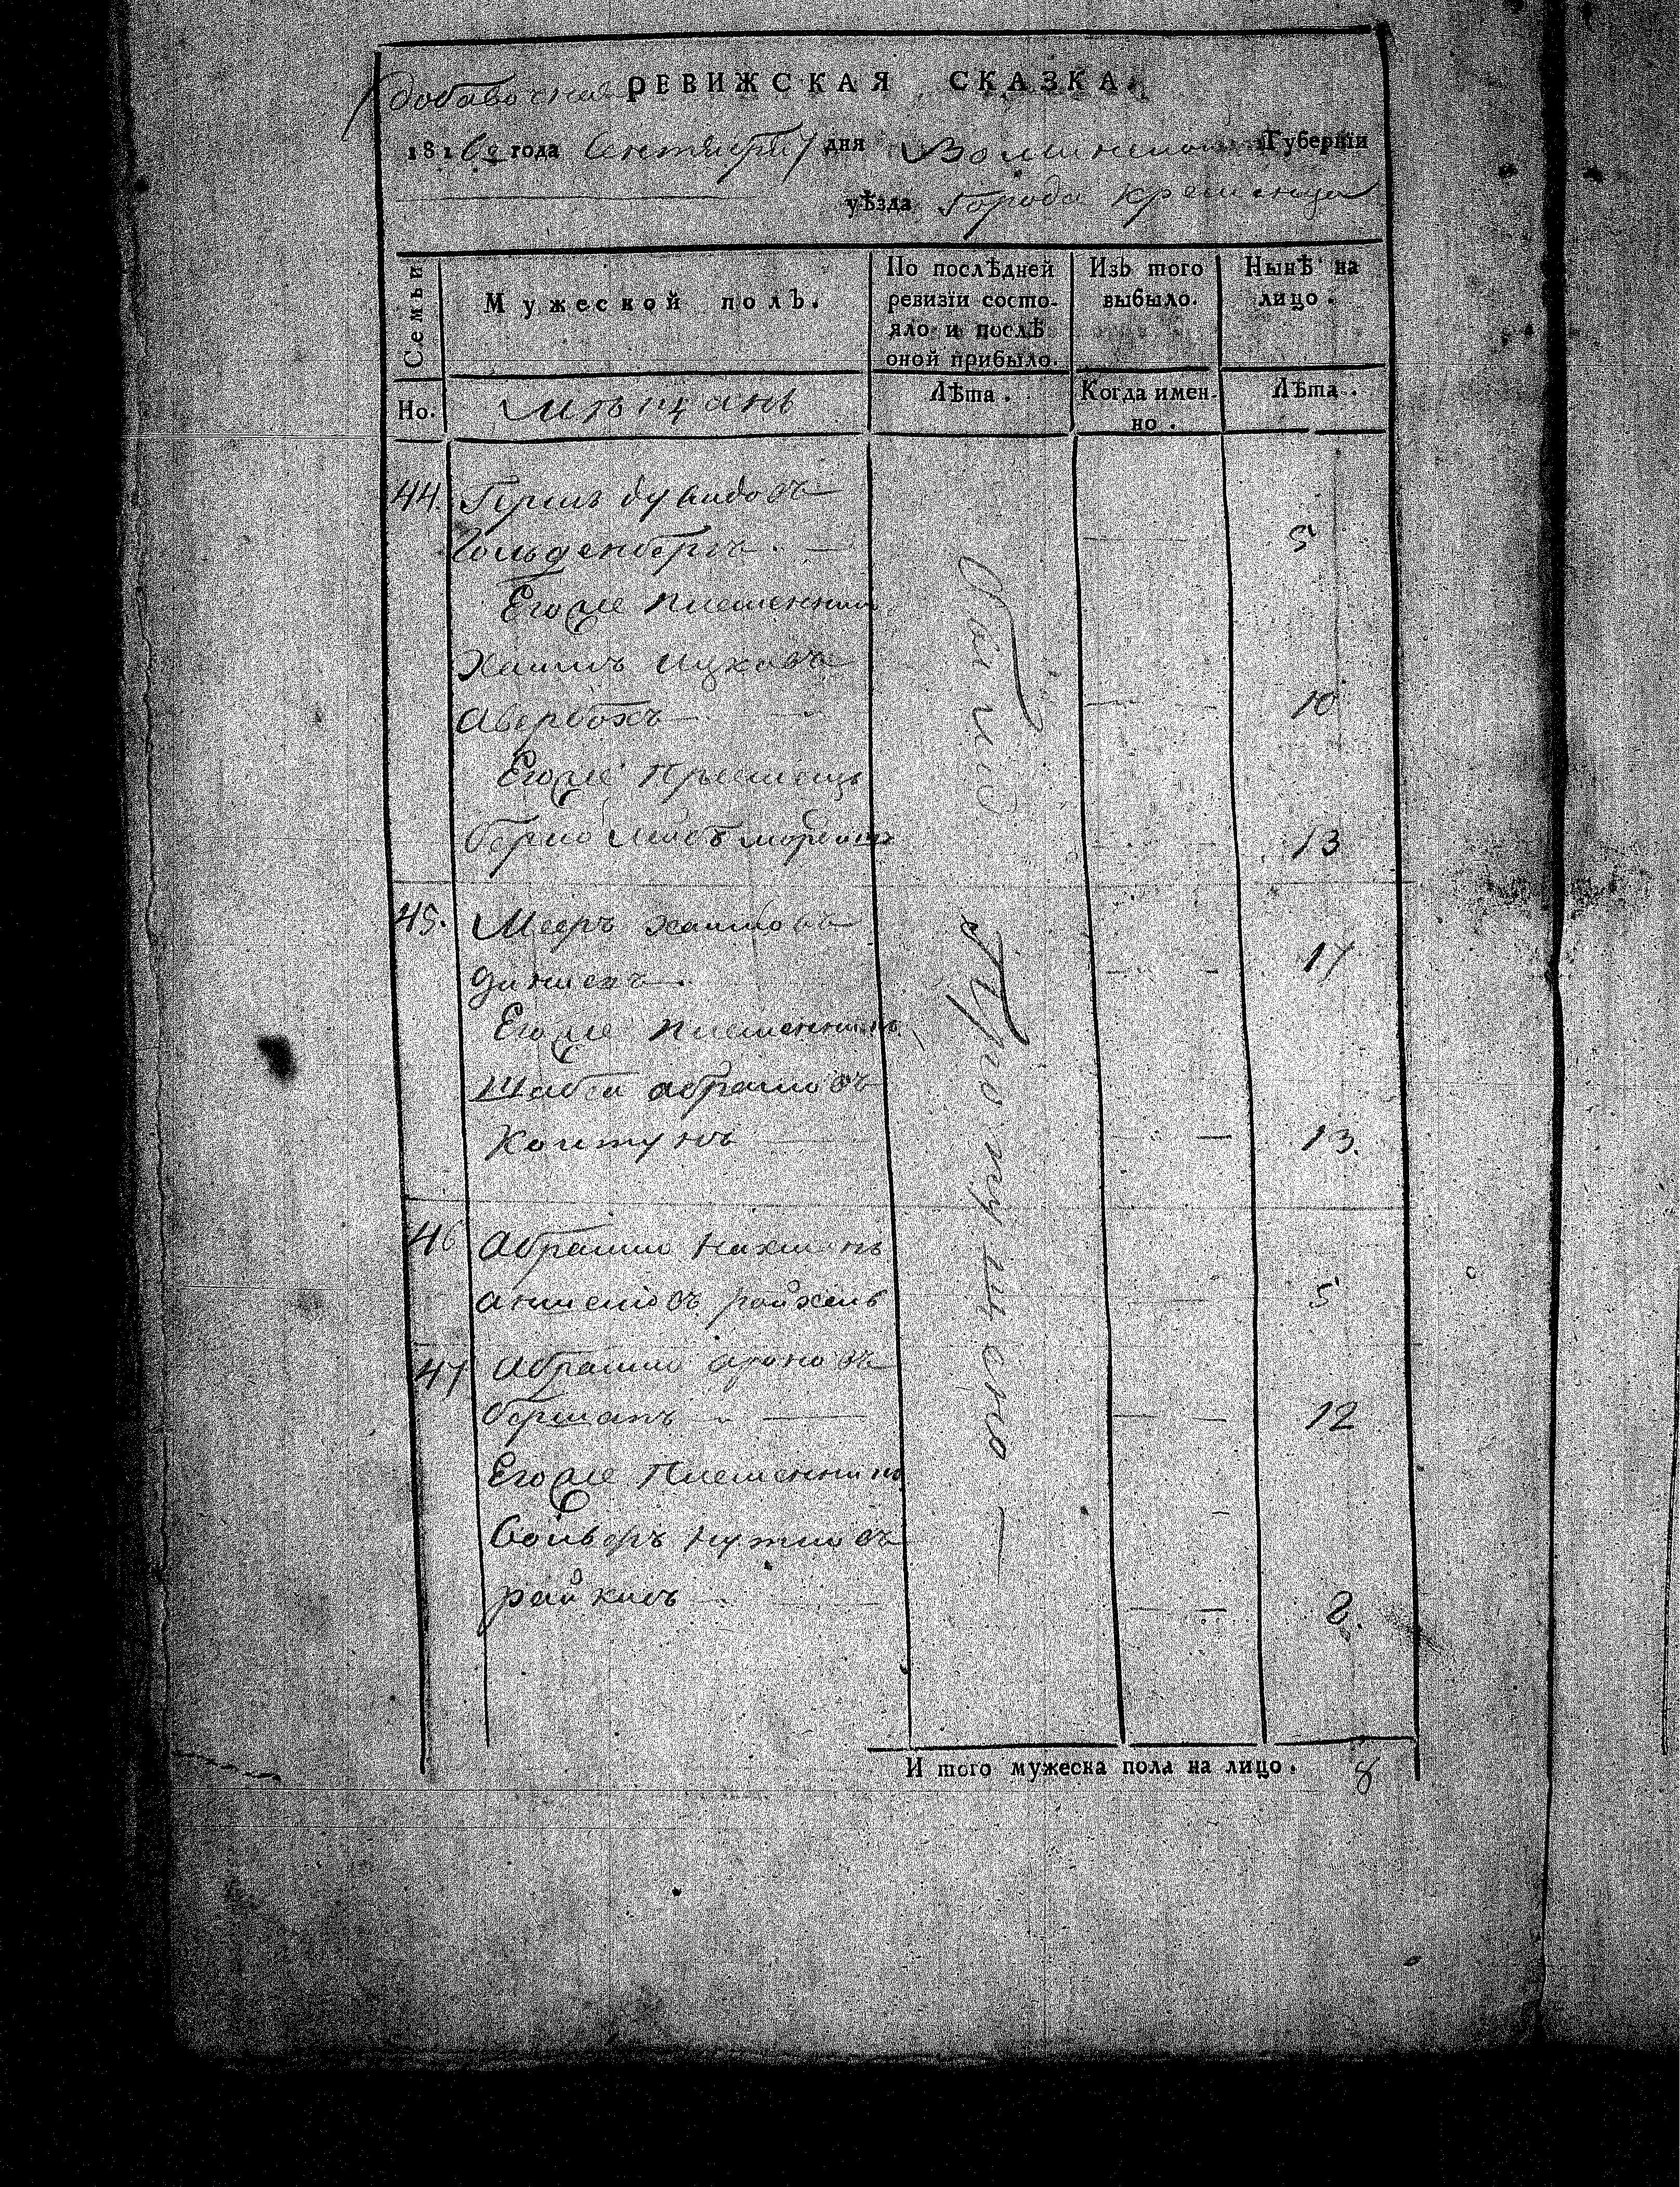 добавочная РЕВИЖСКАЯ СКАЗКА.
1816го года Сентября 7 дня Волынской Губернїи
уѣзда города Кременца
Семьи
Мужеской полъ.
По послѣдней ревизїи состояло и послѣ оной прибыло.
Изъ того выбыло.
Нынѣ на лицо.
Но.
Мѣщанъ
Лѣта.
Когда именно.
Лѣта.
44. Гершъ дувидовъ
Гольденбергъ 5
Его же племянникъ
Хаимъ Ицковъ
Авербохъ 10
Его же
Берко Лейбъ 13
45. Мееръ хаимовъ
17
Его же племянникъ
Шабса абрамовъ
Колтунъ 13.
46 Абрамъ Нахманъ
5
47 Абрамъ ароновъ
12
Его же Племянникъ
8
было
Пропущено
И того мужеска пола на лицо. 8